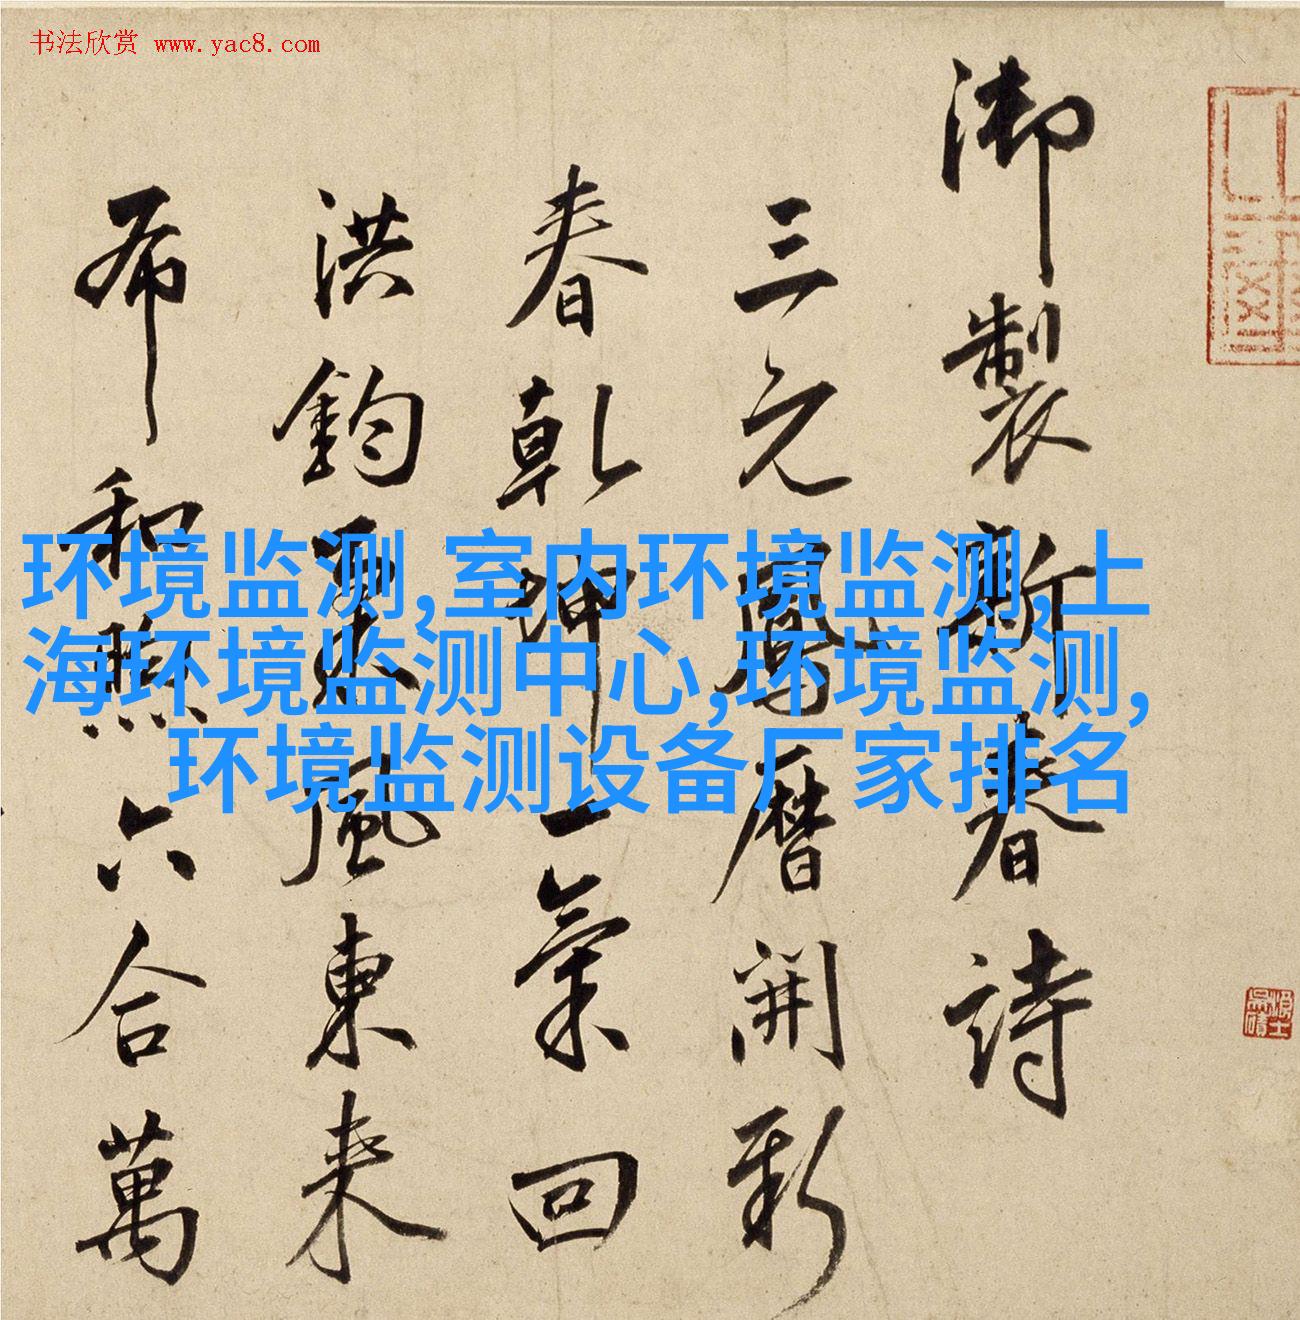 书法欣赏 www.yac8.com
御製新春詩
三元鳳曆開新
春乾坤一氣回
洪鈞風東來
布和煦六合萬
环境监测,室内环境监测,上
海环境监测中心,环境监测,
环境监测设备厂家排名